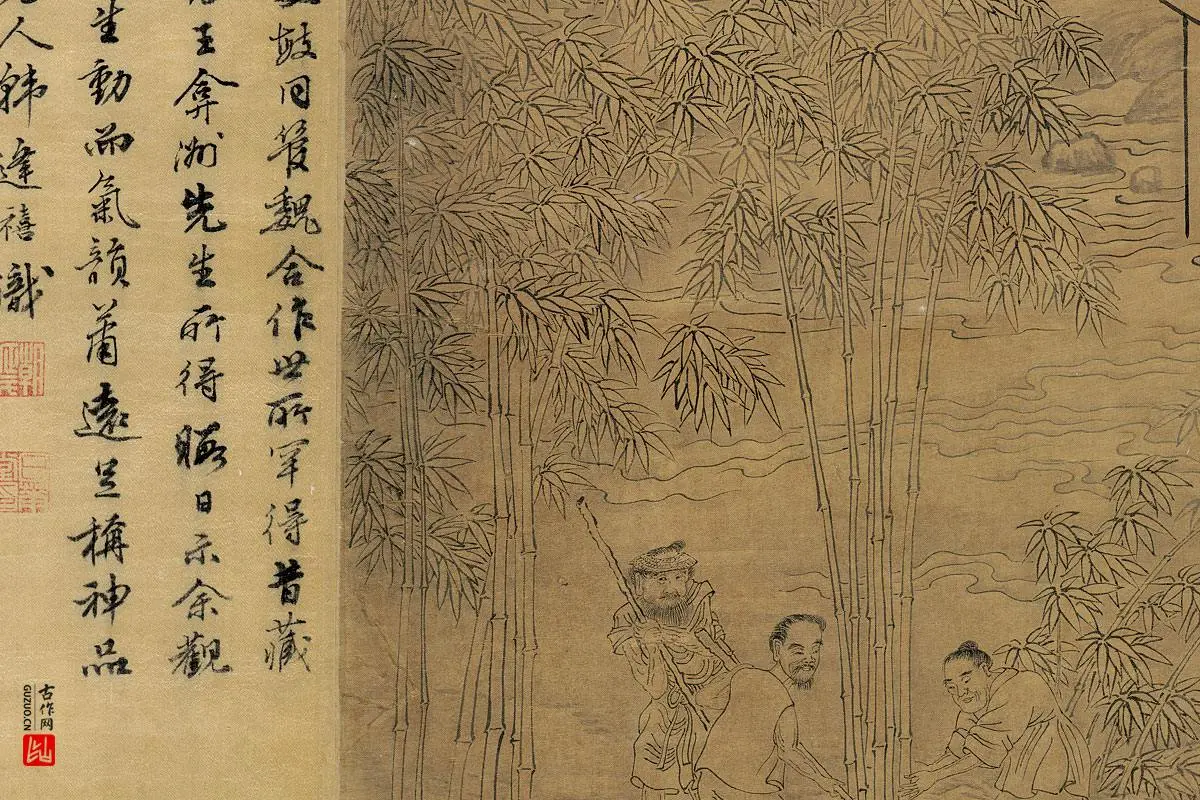 鼓同管魏合作世所罕得昔藏
王弇洲先生所得暇日示余觀
生動而氣韻蕭遠足稱神品
人韓逢禧識
古作网
GUZUO.CN